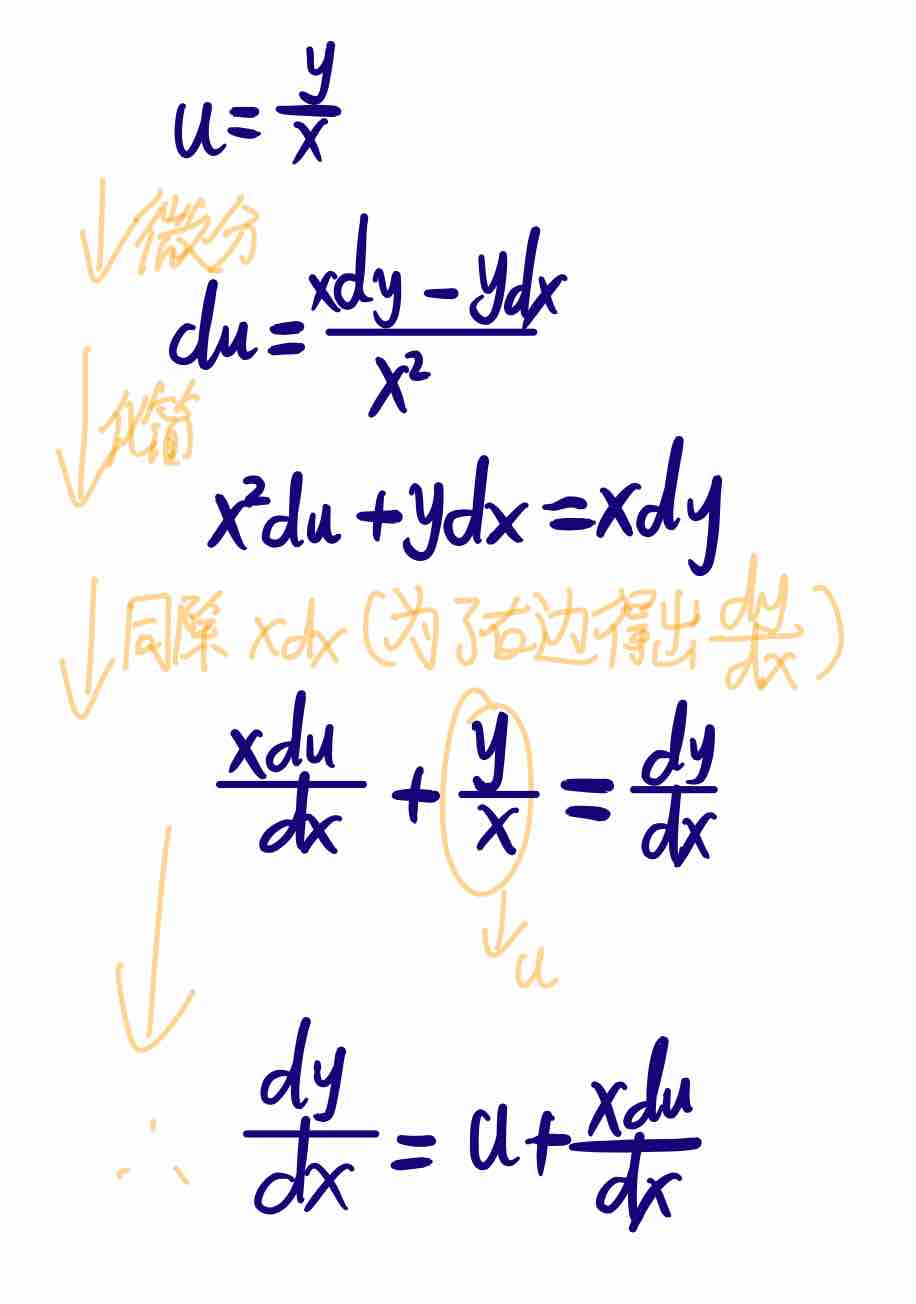 u = y/x
↓ 微分
du = (xdy - ydx)/x²
↓ 化简
x²du + ydx = xdy
↓ 同除 xdx (为了右边得出 dy/dx)
xdu/dx + y/x = dy/dx
↓ u
∴ dy/dx = u + xdu/dx